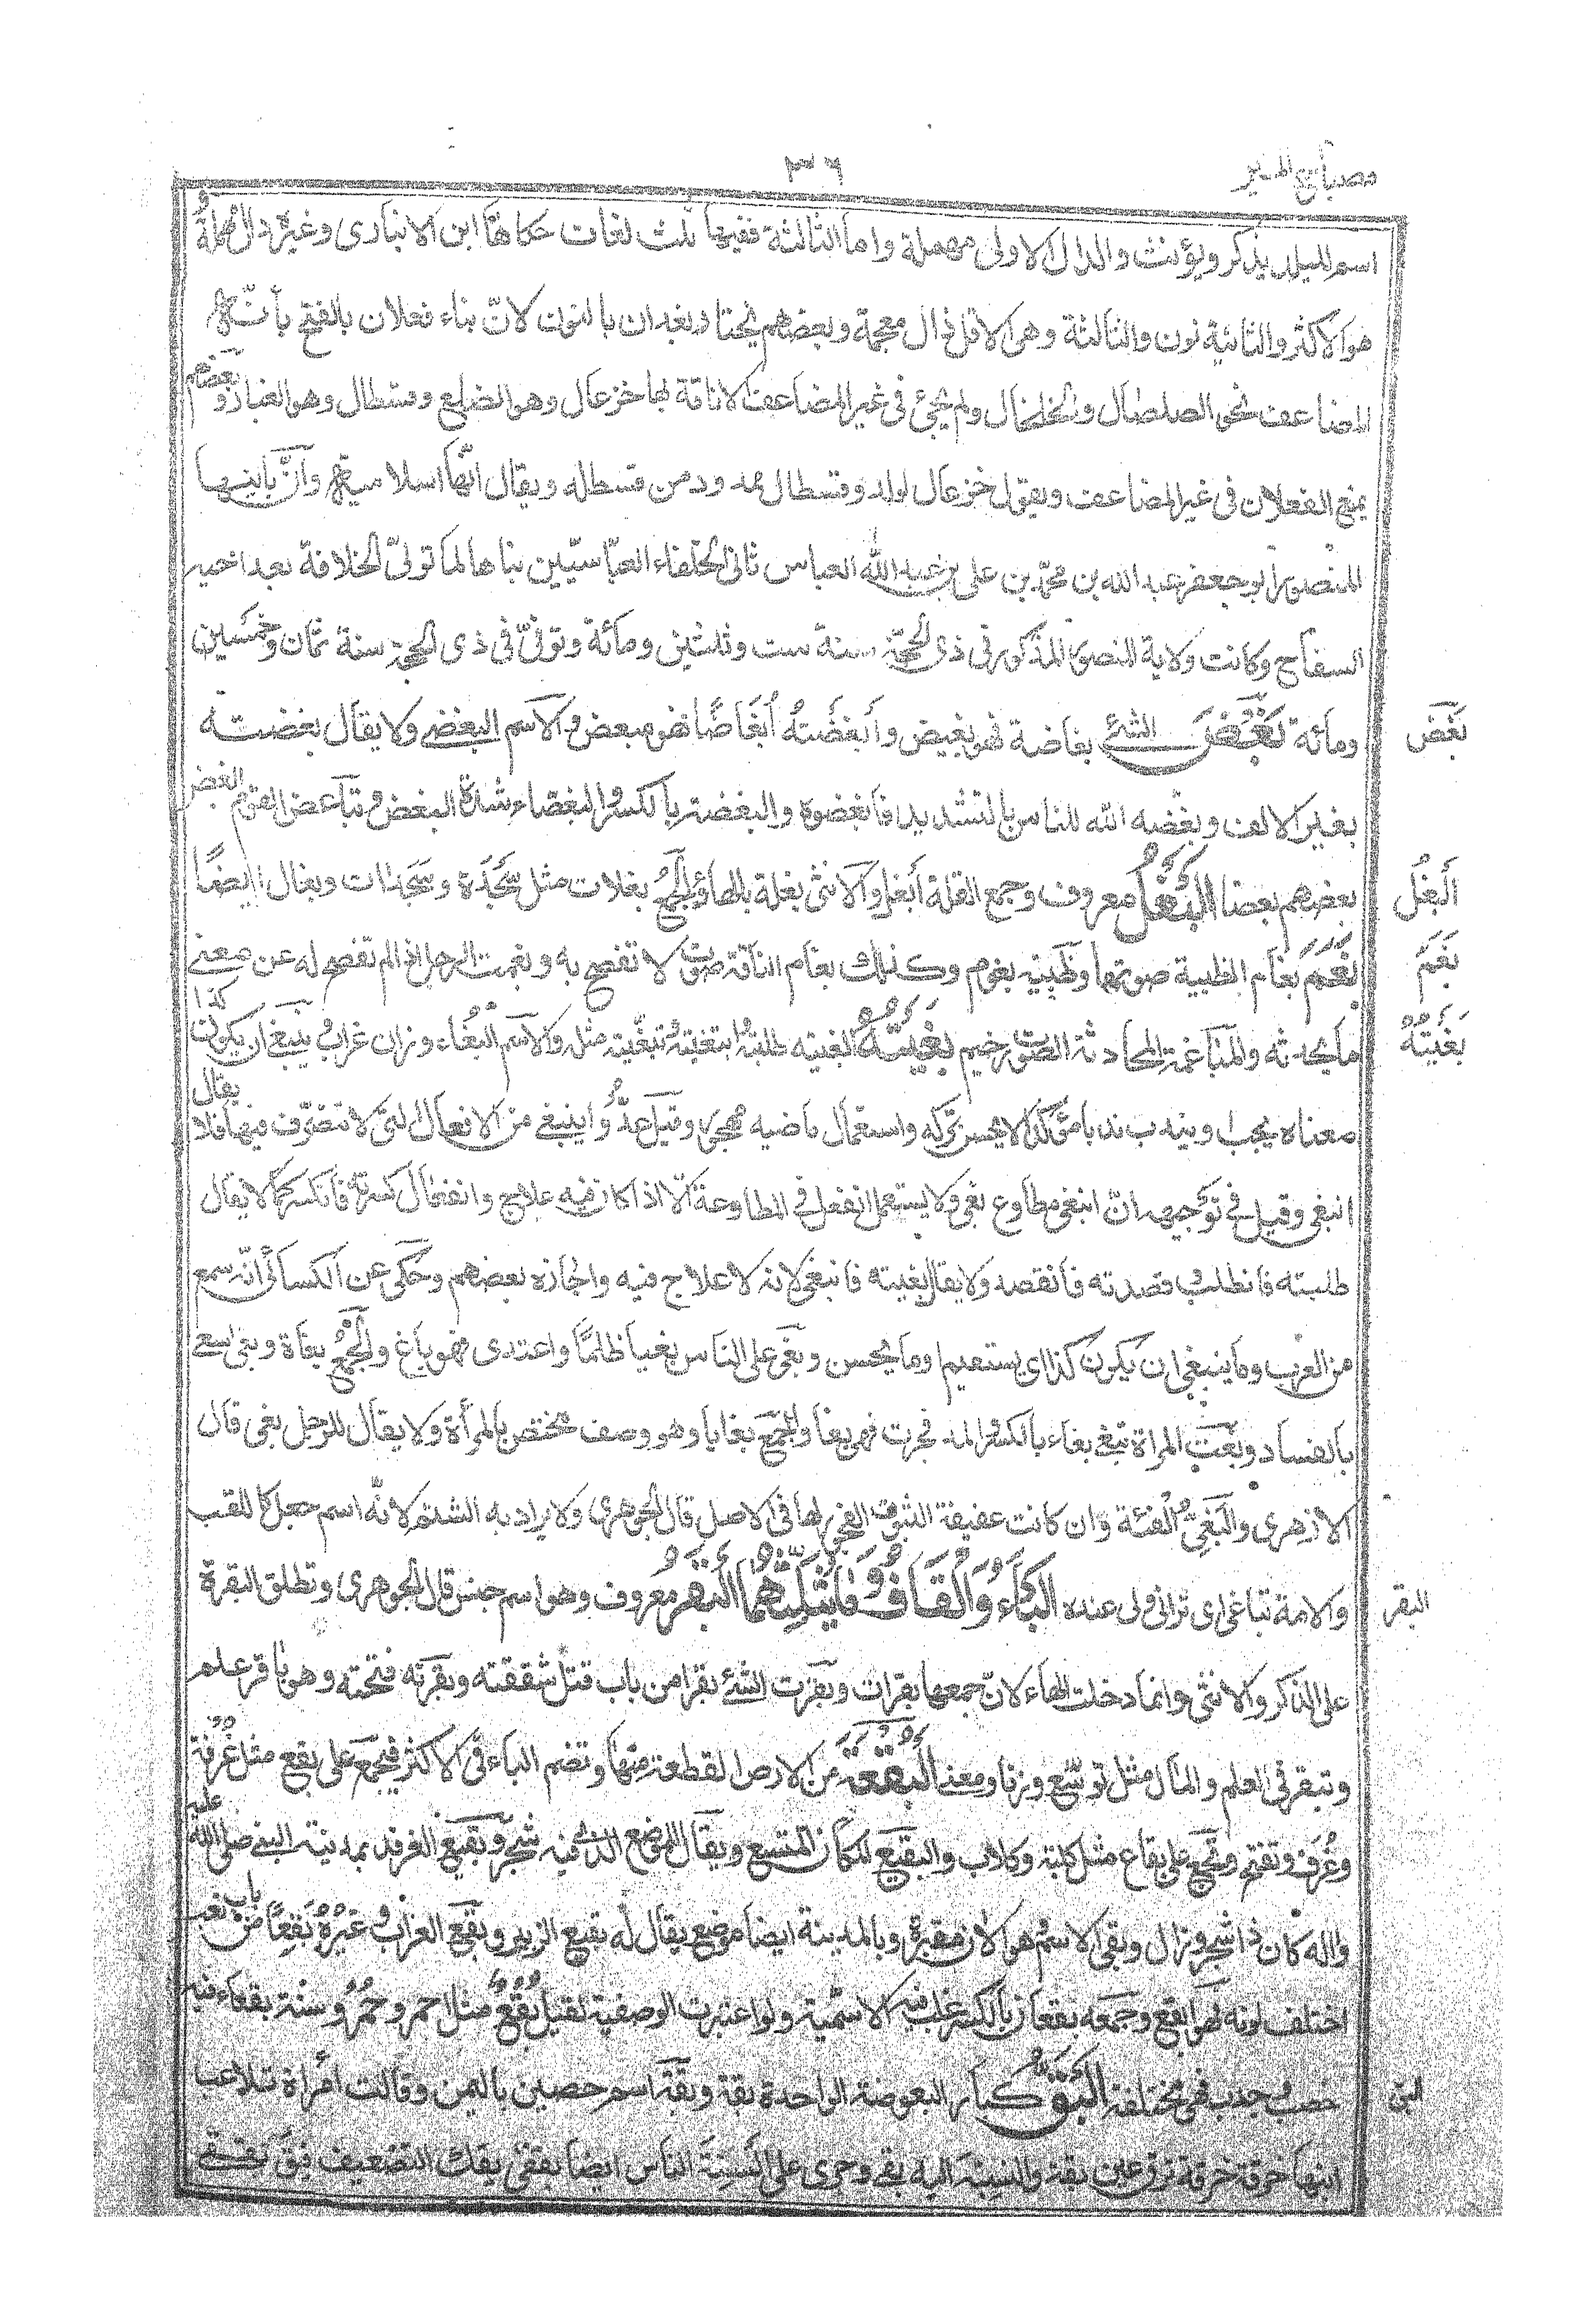 مصباح المنير
٣٦
اسم للبلد يذكر ويؤنث والدال الاولى مهملة واما الثالثة ففيها ثلث لغات حكاها ابن الانبارى وغيره دال مهملة و
هو الاكثر والثانية نون والثالثة وهى الاقل ذال معجمة وبعضهم يختار بغدان بالنون لان بناء فعلان بالفتح بابه
المضاعف نحو الصلصال والخلخال ولم يجئ فى غير المضاعف الا ناقة بها خزعال وهو الضلع وقسطال وهو الغبار وبعضهم
يمنع الفعلان فى غير المضاعف ويقول خزعال لولد وقسطال ممدود من قسطاله ويقال انها اسلامية وان بانيها
المنصور ابو جعفر عبد الله بن محمد بن على بن عبد الله العباس ثانى الخلفاء العباسيين بناها لما تولى الخلافة بعد اخيه
السفاح وكانت ولاية المنصور المذكور فى ذى الحجة سنة ست وثلثين ومائة وتوفى فى ذى الحجة سنة ثمان وخمسين
بَغَضَ
ومائة بَغُضَ الشئ بغاضة فهو بغيض وأبغضته ابغاضًا فهو مبغض والاسم البغض ولا يقال بغضته
بغير الالف وبغضه الله للناس بالتشديد فابغضوه والبغضة بالكسر والبغضاء شدة البغض وتباغض القوم ابغض
اَلبَغْل
بعضهم بعضا البَغْلُ معروف وجمع القلة أبغل والانثى بغلة بالهاء والجمع بغلات مثل سَجْدَة وسَجَدات وبغال ايضًا
بَغَمَ
بَغَمَ بغام الظبية صوتها وظبية بغوم وكذلك بغام الناقة صوت لا تفصح به وبغمت الرجل اذا لم تفصح له عن معنى
بَغَيْتُهُ
ما يحدثه والمناغمة المحادثة الصوت رخيم بَغَيْتُهُ ابغيه طلبته ابتغيته تبغيته مثله والاسم البُغاء وزان غراب وينبغى ان يكون كذا
معناه يجب او يندب ندبا مؤكدا لا يحسن تركه واستعمال ماضيه مهجور وقيل عدوا ينبغى من الافعال التى لا تتصرف فيها فلا يقال
انبغى وقيل فى توجيهه انّ انبغى مطاوع بغى ولا يستعمل انفعل فى المطاوعة الا اذا كان فيه علاج وانفعال كسرته فانكسر كما لا يقال
طلبته فانطلب وقصدته فانقصد ولا يقال بغيته فانبغى لانه لا علاج فيه واجازه بعضهم وحكى عن الكسائى انه سمع
من العرب وما ينبغى ان يكون كذا اى يستقيم او ما يحسن وبغى على الناس بغيا ظلمًا واعتدى فهو باغ والجمع بغاة وبغى سعى
بالفساد وبغت المراة تبغى بغاء بالكسر والمد فجرت فهى بغى والجمع بغايا وهو وصف مختص بالمرأة ولا يقال للرجل بغى قال
الازهرى والبغى الفئة وان كانت عفيفة الفجور لها فى الاصل قال الجوهرى ولا يراد به الشتم لانه اسم جعل كاللقب
البقر
والامة تباغى اى تزانى ولى عنده البَاءُ وَالْقَافُ وَمَا يُثَلِّثُهُمَا البَقَرُ معروف وهو اسم جنس قال الجوهرى وتطلق البقرة
على الذكر والانثى وانما دخلت الهاء لان جمعها بقرات وبقرت الشئ بقرا من باب قتل شققته وبقرته فتحته وهو باقر علم
وتبقر فى العلم والمال مثل توسّع وزنا ومعنى البُقْعَة من الارض القطعة منها وتضم الباء فى الاكثر فتجمع على بقع مثل غُرْفة
وغُرَف وتفتح وتجمع على بقاع مثل كلبة وكلاب والبقيع المكان المتسع ويقال الموضع الذى فيه شجر وبقيع الغرقد بمدينة النبى صلى الله عليه
واله كان ذا شجر وزال وبقى الاسم وهو الان مقبرة وبالمدينة ايضا موضع يقال له بقيع الزبير وبقع الغراب وغيره بَقَعًا من باب تعب
اختلف لونه فهو ابقع وجمعه بقعان بالكسر غلب فيه الاسمية ولو اعتبرت الوصفية لقيل بُقْعٌ مثل احمر وحُمْر وسنة بقعاء فيه
البق
خصب وجدب فهى مختلفة البَقُّ كبار البعوضة الواحدة بقة وبقة اسم حصين باليمن وقالت أمراة تلاعب
ابنها خرقة خرقة ترق عين بقة والنسبة اليه بقى وجرى على السنة الناس ايضا بققى بفك التضعيف